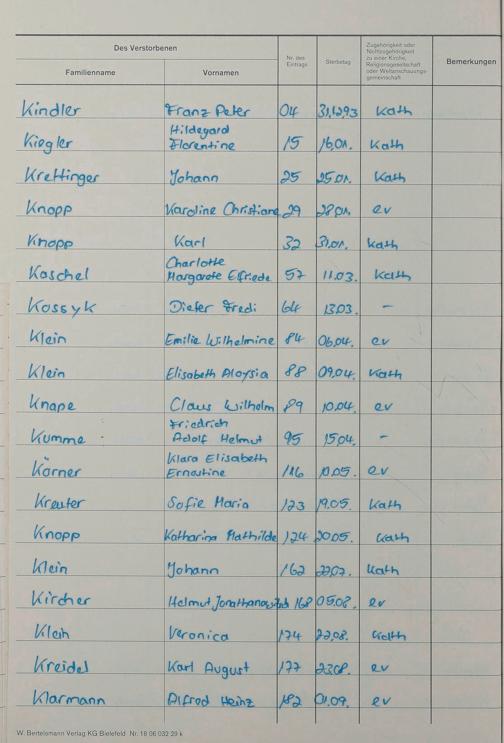 Des Verstorbenen
Familienname Vornamen Nr. des Eintrags Sterbetag Zugehörigkeit oder Nichtzugehörigkeit zu einer Kirche, Religionsgesellschaft oder Weltanschauungsgemeinschaft Bemerkungen
Kindler Franz Peter 04 31.12.93 Kath
Hildegard
Kiegler Florentine 15 16.01. Kath
Krettinger Johann 25 25.01. Kath
Knopp Karoline Christiane 29 28.01. ev
Knopp Karl 32 31.01. Kath
Charlotte
Koschel Margarete Elfriede 57 11.03. Kath
Kossyk Dieter Fredi 64 13.03 -
Klein Emilie Wilhelmine 84 06.04. ev
Klein Elisabeth Aloysia 88 09.04. Kath
Knape Claus Wilhelm 89 10.04. ev
Friedrich
Kumme Adolf Helmut 95 15.04. -
Klara Elisabeth
Körner Ernestine 116 10.05. ev
Kreuter Sofie Maria 123 19.05. Kath
Knopp Katharina Mathilde 124 20.05. Kath
Klein Johann 162 Kath
Kircher Helmut 168 05.08. ev
Klein Veronica 174 22.08. Kath
Kreidel Karl August 177 23.08. ev
Klarmann Alfred Heinz 182 01.09. ev
W. Bertelsmann Verlag KG Bielefeld Nr. 18 06 032 29 k